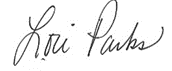 Lori Parks